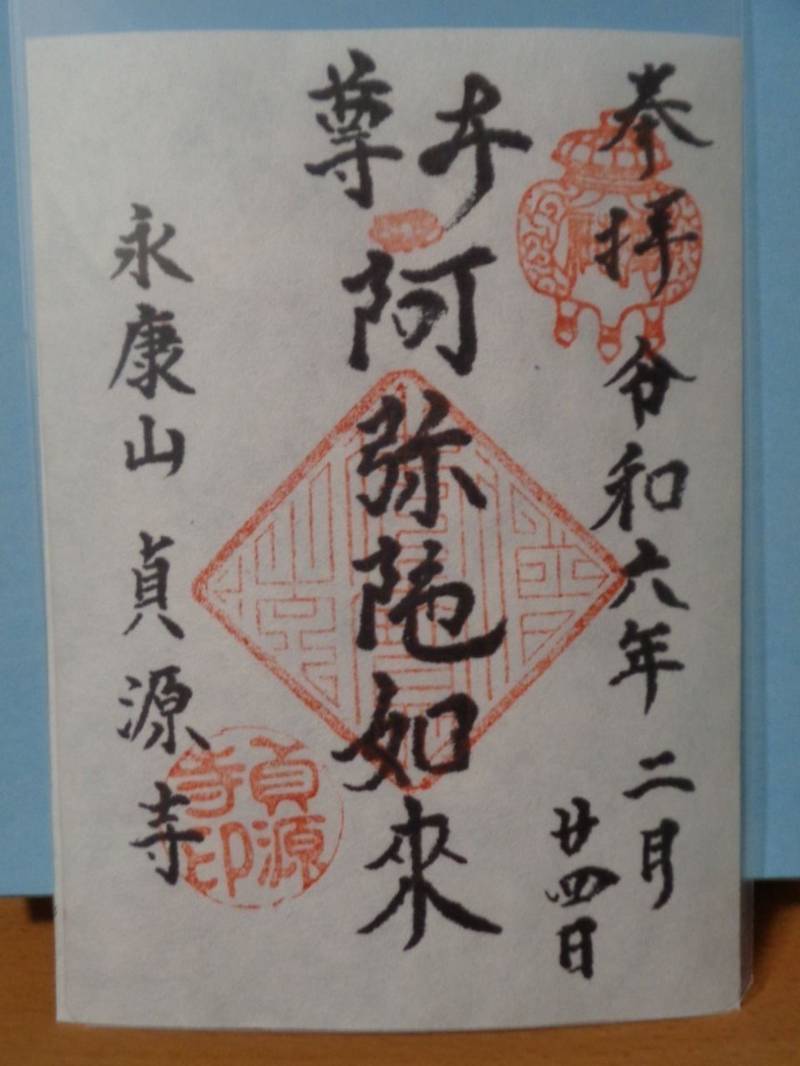 奉拝 令和六年 二月
廿四日
本尊
阿弥陀如來
永康山 貞源寺
貞源寺印